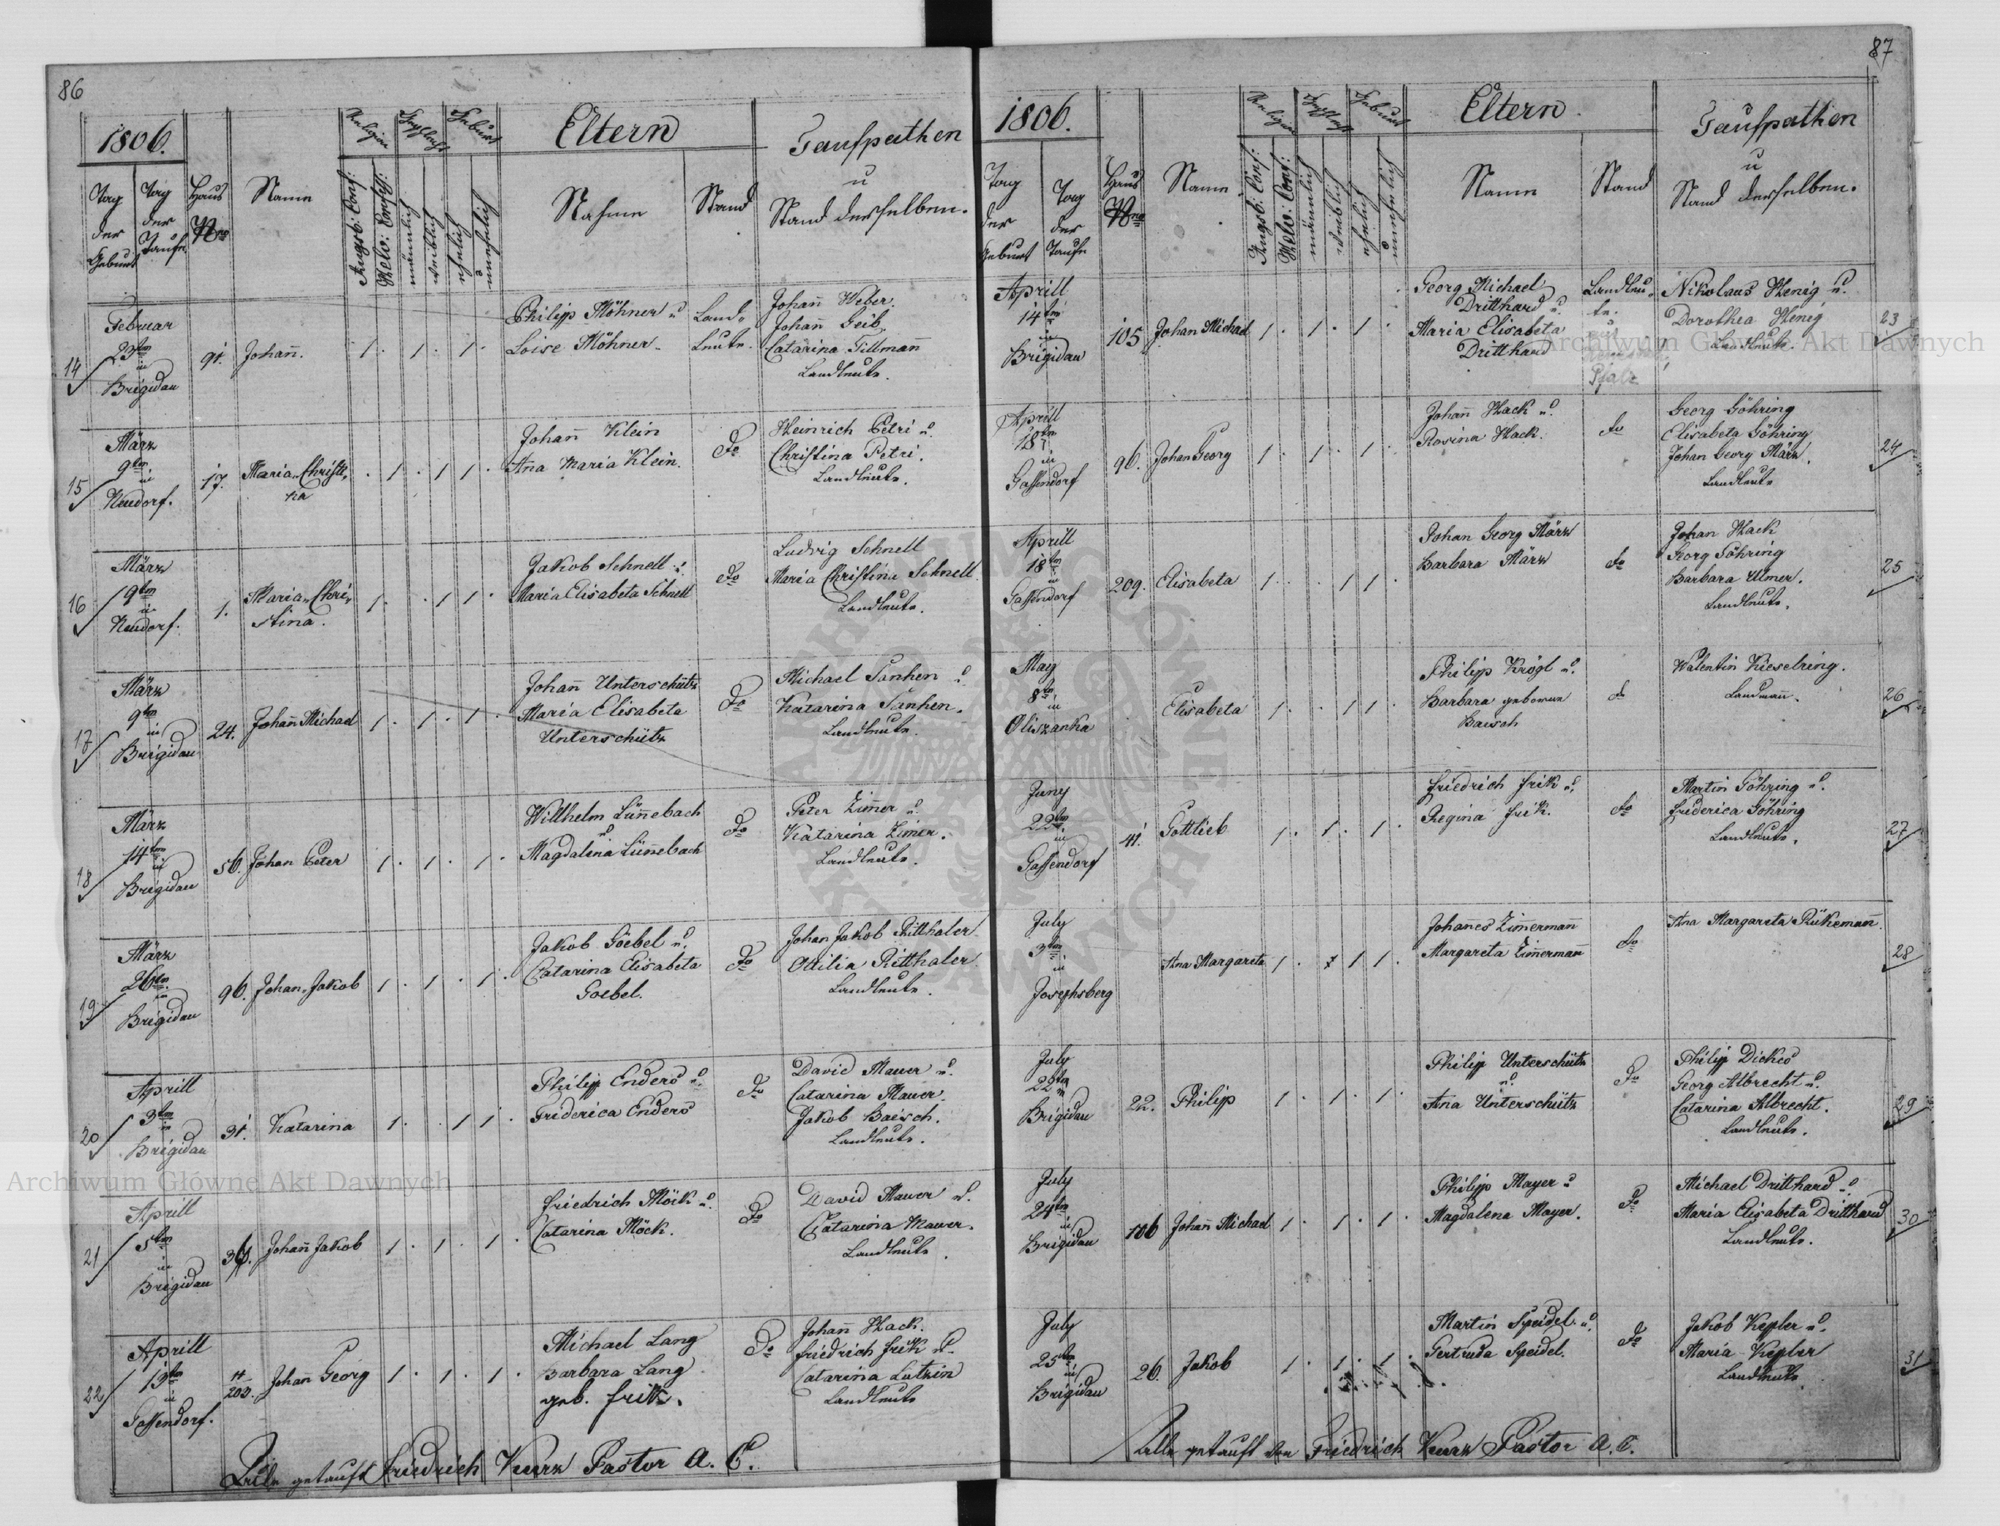 86
1806.
Religion
Geschlecht
Geburt
Eltern
Taufpathen
u
Stand derselben.
Tag
der
Geburt
Tag
der
Taufe
Haus
Nro
Name
Augsb: Conf:
Helv: Conf:
männlich
weiblich
ehelich
unehelich
Nahme
Stand
14
Februar
23ten
in
Brigidau
91.
Johañ.
1 . 1 . 1 .
Philipp Möhner u
Loise Möhner.
Land-
leute.
Johañ Weber
Johañ Geib
Catarina Tillmañ
Landleute.
15
März
9ten
in
Neudorf.
17.
Maria Christi-
na
. 1 . 1 1 .
Johañ Klein
Ana Maria Klein.
do
Heinrich Petri u.
Christina Petri.
Landleute.
16
März
9ten
in
Neudorf.
1.
Maria Chri-
stina.
1 . . 1 1 .
Jakob Schnell u.
Maria Elisabeta Schnell
do
Ludvig Schnell
Maria Christina Schnell
Landleute.
17
März
9ten
in
Brigidau
24.
Johañ Michael
1 . 1 . 1 .
Johañ Unterschütz
Maria Elisabeta
Unterschütz
do
Michael Sanhen u.
Katarina Sanhen.
Landleute.
18
März
14ten
in
Brigidau
56.
Johan Peter
1 . 1 . 1 .
Willhelm Lüñebach
u
Magdalena Lüñebach
do
Peter Zim̃er u.
Katarina Zimer.
Landleute.
19
März
26ten
in
Brigidau
96.
Johan Jakob
1 . 1 . 1 .
Jakob Goebel u.
Catarina Elisabeta
Goebel.
do
Johan Jakob Ritthaler
Ottilia Ritthaler
Landleute.
20
Aprill
3ten
in
Brigidau
31.
Katarina
1 . . 1 1 .
Philipp Enders u.
Friderica Enders
do
David Mauer u.
Catarina Mauer.
Jakob Baisch.
Landleute.
21
Aprill
5ten
in
Brigidau
Johañ Jakob
1 . 1 . 1 .
Friedrich Möck u.
Catarina Möck.
do
David Mauer u.
Catarina Mauer.
Landleute.
22
Aprill
13ten
in
Gassendorf.
Johañ Georg
1 . 1 . 1 .
Michael Lang
Barbara Lang
geb. Frik.
do
Johañ Hack.
Friedrich Frik u.
Catarina Lutzin
Landleute
Alle getauft Friedrich Kurz Pastor A. C.
87
1806.
Religion
Geschlecht
Geburt
Eltern.
Taufpathen
u
Stand derselben.
Tag
der
Geburt
Tag
der
Taufe
Haus
Nro
Name
Augsb: Conf:
Helv. Conf:
männlich
weiblich
ehelich
unehelich
Name
Stand
Aprill
14ten
in
Brigidau
105
Johan Michael
1 . 1 . 1 .
Georg Michael
Dritthard u.
Maria Elisabeta
Dritthard
Landleu-
te.
Pfalz
Nikolaus Henig u.
Dorothea Henig
Landleute.
23
Aprill
18ten
in
Gassendorf
96.
Johan Georg
1 . 1 . 1 .
Johañ Hack u.
Rosina Hack.
do
Georg Göhring
Elisabeta Göhring
Johan Georg März.
Landleute
24
Aprill
18ten
in
Gassendorf
209.
Elisabeta
1 . . 1 1 .
Johan Georg März
Barbara März
do
Johan Hack
Georg Göhring
Barbara Ulmer.
Landleute.
25
May
8ten
in
Oliszanka
Elisabeta
1 . . 1 1 .
Philipp Krögl u.
Barbara geborene
Baisch
do
Walentin Kieselring.
Landmañ.
26
Juny
22ten
in
Gassendorf
41.
Gottlieb
1 . 1 . 1 .
Friedrich Frik u.
Regina Frik.
do
Martin Göhring u.
Friderica Göhring
Landleute.
27
July
3ten
in
Josephsberg
Ana Margareta
1 . . 1 1 .
Johanes Zim̃ermañ
Margareta Zim̃ermañ
do
Ana Margareta Rükemañ
28
July
22ten
in
Brigidau
22.
Philipp
1 . 1 . 1 .
Philipp Unterschütz
u.
Ana Unterschütz
do
Philipp Dickes
Georg Albrecht u.
Catarina Albrecht.
Landleute.
29
July
24ten
in
Brigidau
106
Johañ Michael
1 . 1 . 1 .
Philipp Mayer u
Magdalena Mayer.
do
Michael Dritthard u.
Maria Elisabeta Dritthard
Landleute.
30
July
25ten
in
Brigidau
26.
Jakob
1 . 1 . 1 .
Martin Speidel u.
Gertruda Speidel.
do
Jakob Kepler u.
Maria Kepler
Landleute
31
Alle getauft von Friedrich Kurz Pastor A. C.
Archiwum Główne Akt Dawnych
Archiwum Główne Akt Dawnych
ARCHIWUM GŁÓWNE AKT DAWNYCH